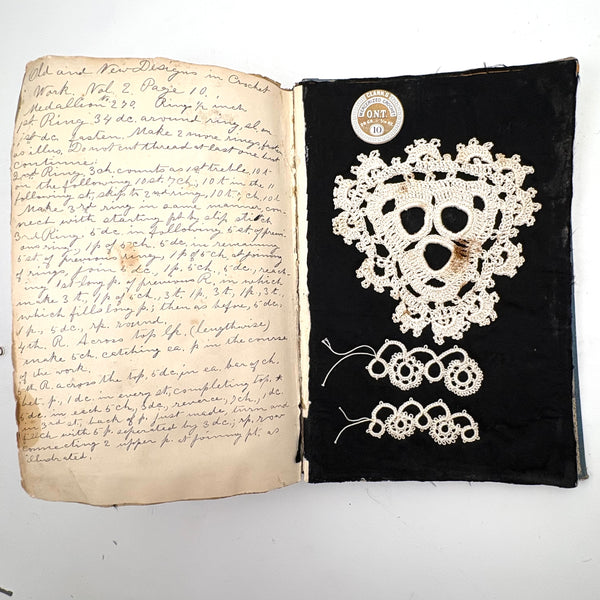 Old and New Designs in Crochet
Work. Vol 2. Page 10.
Medallion 270. Ring p inch
1st Ring 34 dc. around ring, sl. on
1st dc. fasten. Make 2 more rings,
as illus. Do not cut thread at last one but
continue
2nd Ring, 3 ch. counts as 1st treble, 10 t
on the following 10 st. 7 ch, 10 t in the "
following st, skip to 3rd ring, 10 t; 7 ch, 10 t
Make 3rd ring in same manner, con-
nect with starting pt by slip stitch
3rd Ring, 5 dc. in following 5 st of previ-
ous ring, 1 p of 5 ch, 5 dc. in remaining
5 st of previous ring, 1 p of 5 ch at joining
of rings, four 5 dc., 1 p, 5 ch, 5 dc., reach-
ing 1st long p. of previous R, in which
make 3 t, 1 p of 5 ch, 3 t, 1 p, 3 t, 1 p, 3 t,
which fills long p; then as before, 5 dc.
1 p., 5 dc., rp. round,
4th R. Across top lp. (lengthwise)
make 5 ch. catching ea. p in the course
of the work.
R across the top, 5 dc, in ea. bar of ch.
let. p, 1 dc. in every st, completing top, *
dc. in each 5 ch, 3 dc, reverse, 7 ch, 1 dc.
in 3rd st, back of p. just made, turn and
with 5 p. seperated by 3 dc; rp. row
connecting 2 upper p. at joining pt. as
illustrated.
CLARK'S
MERCERIZED CROCHET
O.N.T.
10